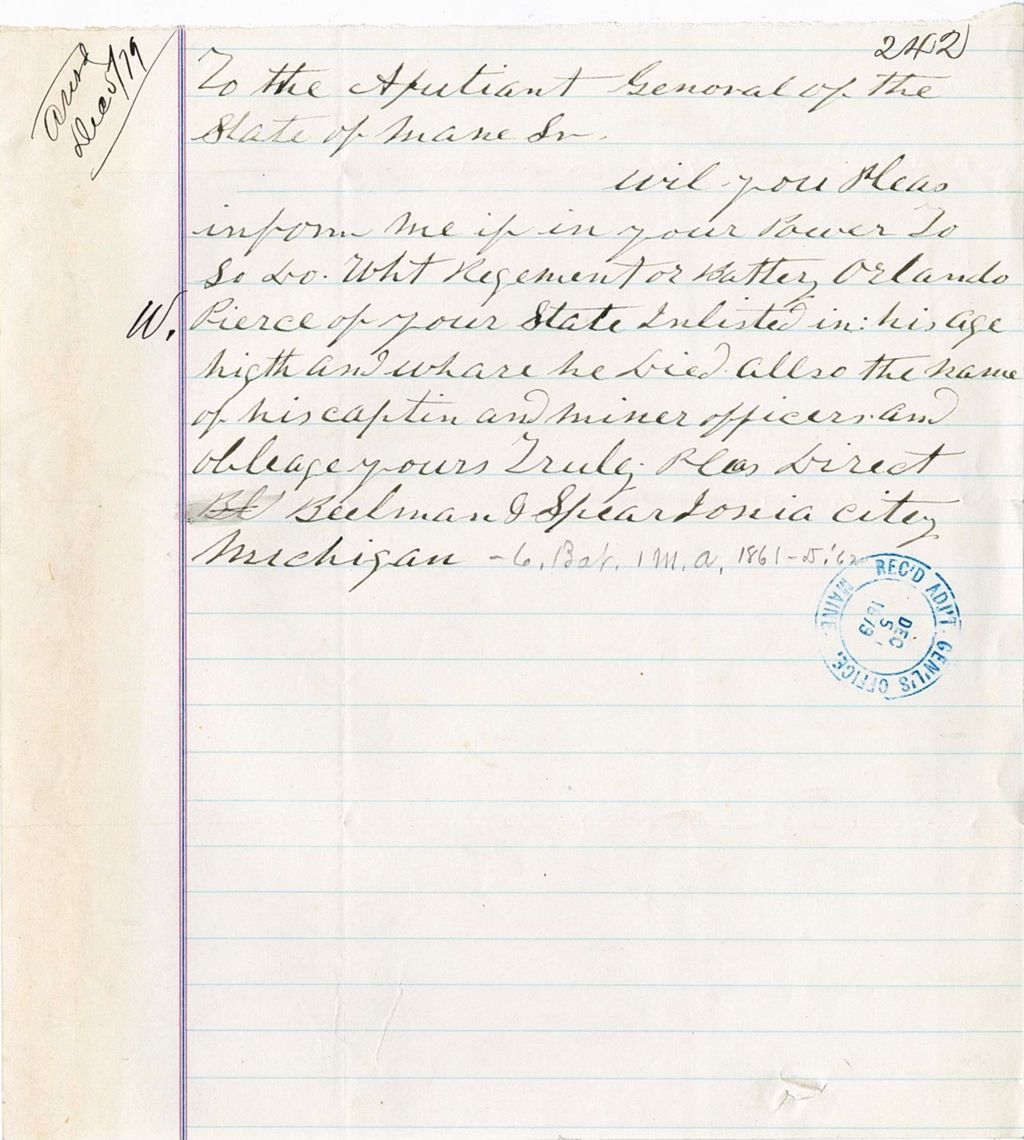 242
Answd
Dec 5/79
To the Ajutiant General of the
State of Mane Sr.
wil you Pleas
inform Me if in your Power To
So Do. Wht Regement or Battery Orlando
W. Pierce of your State Inlisted in: his age
higth and whare he Died. allso the name
of his captin and miner officers. and
obleage yours Truly. Pleas Direct
Beelman & Spear Ionia city
Michigan - 6. Bat. 1 M. a, 1861-5.'62
REC'D ADJ'T. GEN'L'S OFFICE, MAINE
DEC
5
1879